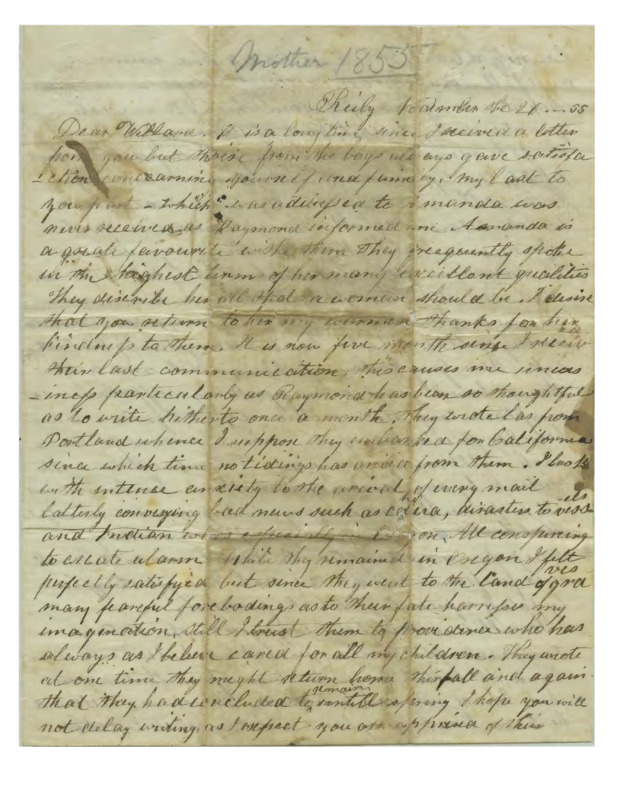 Mother 1855
Reily November the 21 55
Dear Willard. It is a long time since I received a letter
from you but those from the boys always gave satisfa
-ction concearning yourself and family. My last to
you - which was addressed to Amanda was
never received as Raymond informed me Amanda is
a greate favourite with them They freequently spoke
in the highest terms of her many excellant qualities
They discribe her all that a woman should be. I desire
that you return to her my warmest thanks for her
kindness to them. It is now five month since I receiv ed
their last communication, this causes me uneas
-iness particularly as Raymond has been so thoughtful
as to write hitherto once a month. They wrote las from
Portland whence I suppose they embarked for California
since which time no tidings has arived from them. I look
with intense anxiety to the arival of every mail
latterly conveying bad news such as colera, disasters to vess els
and Indian wars especially Oregon. All conspiring
to create alarm While they remained in Oregon I felt
perfectly satisfyed but since they went to the land of gra ves
many fearful forebodings as to their fate harrass my
imagination, still I trust them to providence who has
always as I beleive cared for all my children. They wrote
at one time they might return home this fall and again
that they had concluded to remain untill spring I hope you will
not delay writing as I expect you are apprised of their